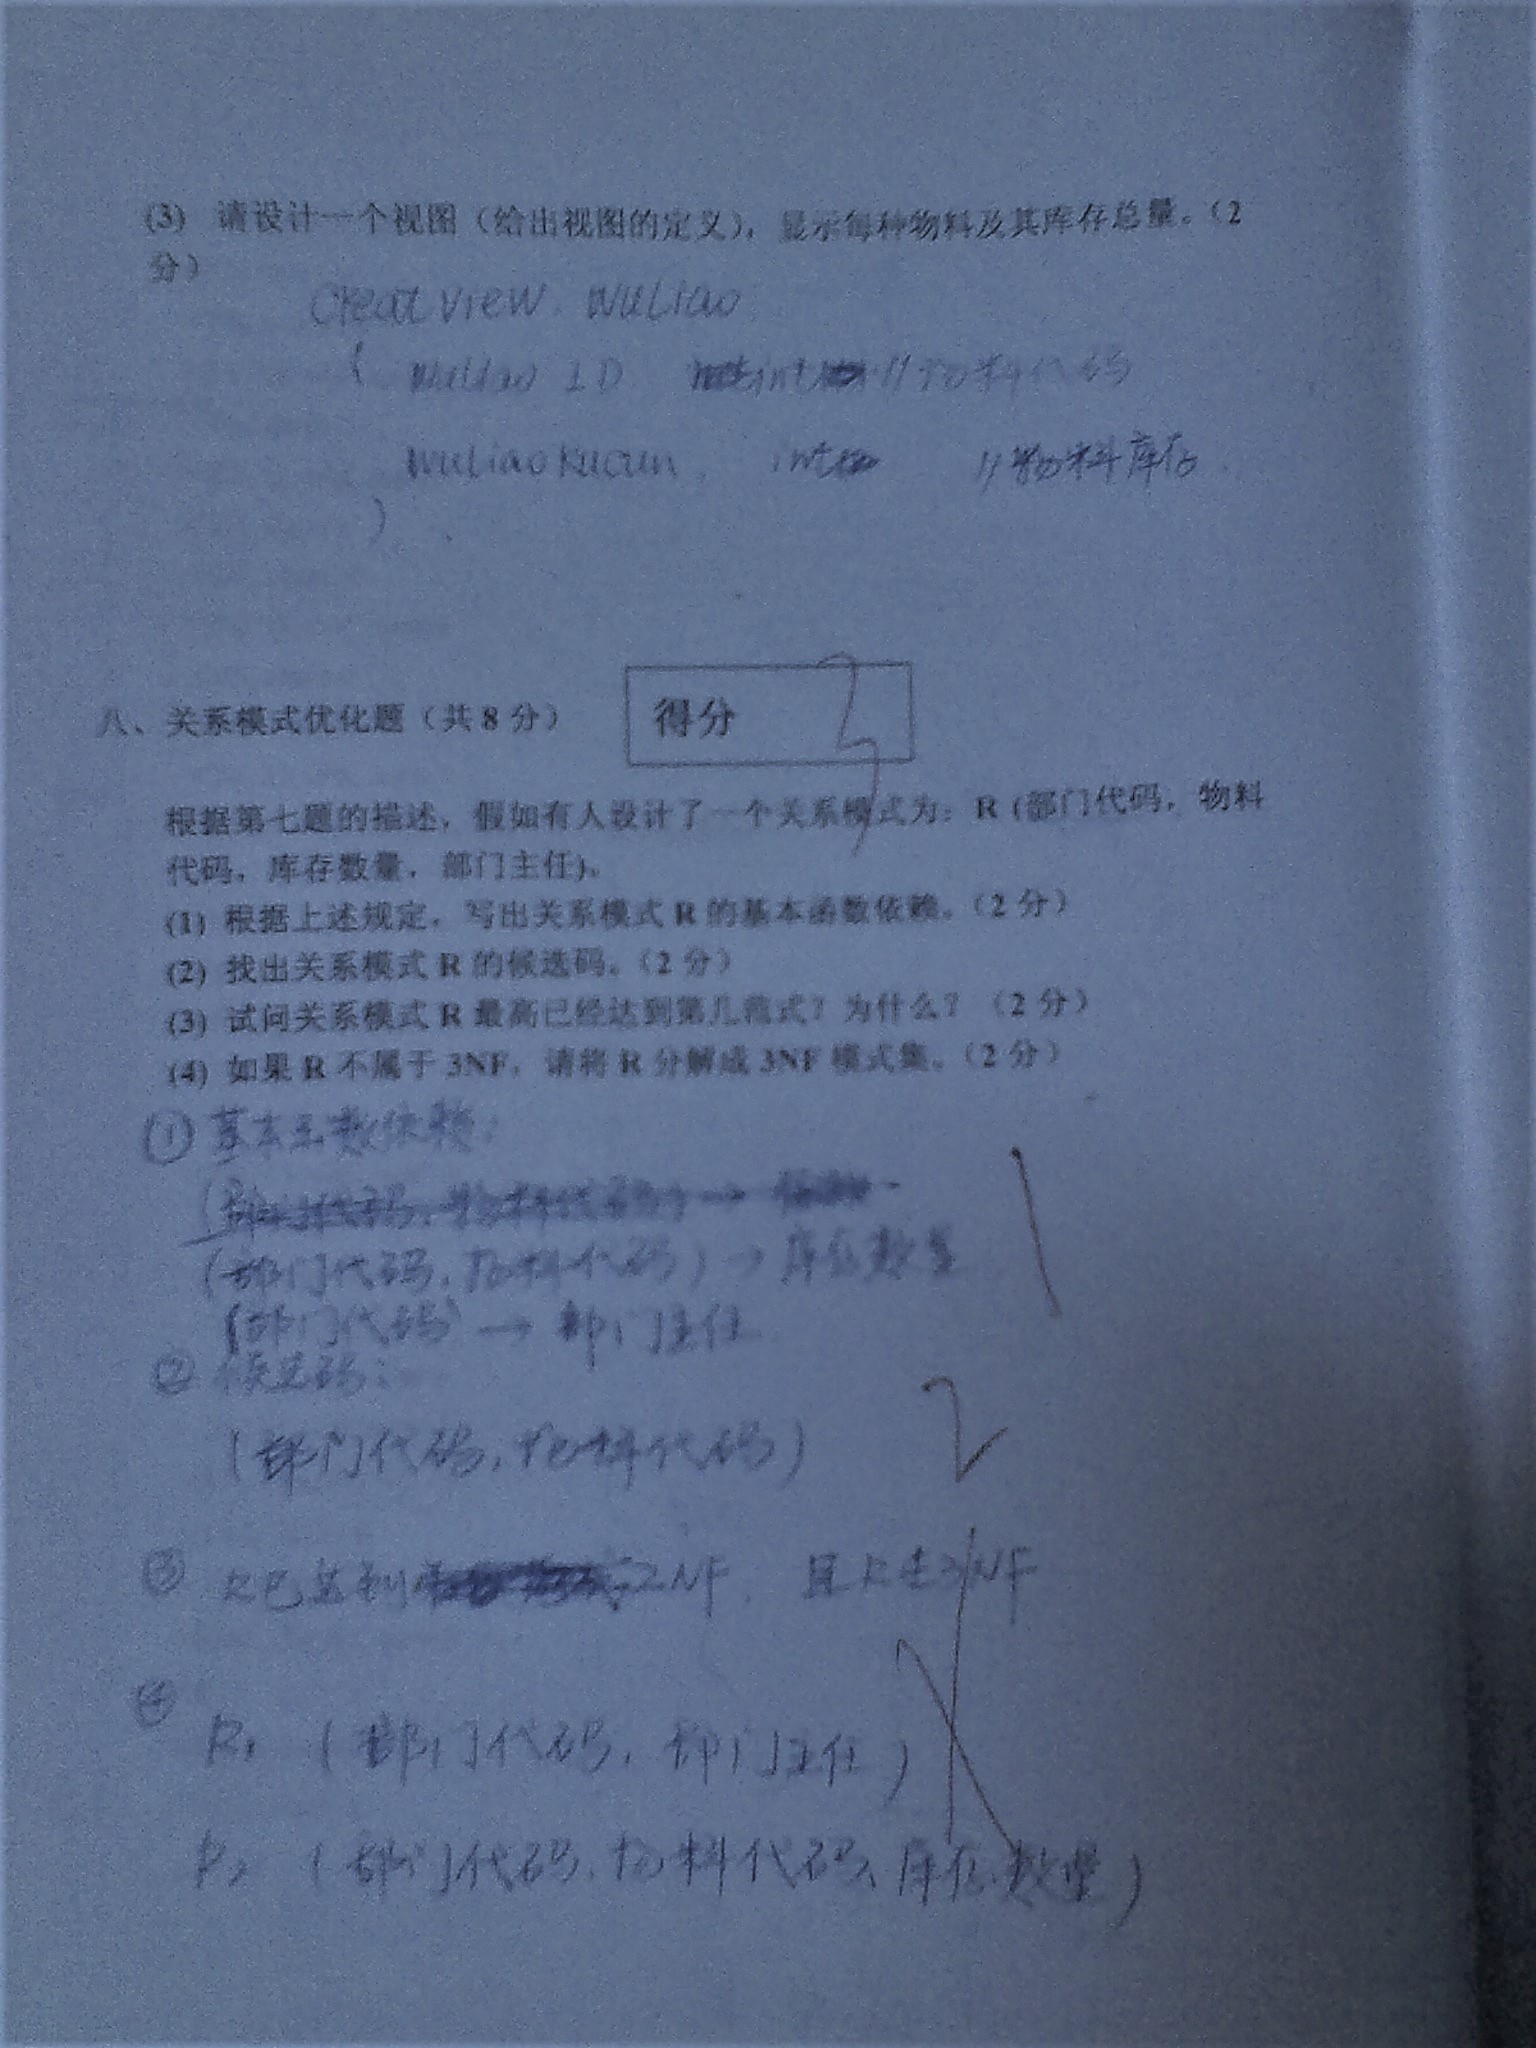 (3) 请设计一个视图（给出视图的定义），显示每种物料及其库存总量。（2
分）
Creat view. WuLiao
( WuLiao ID int //物料代码
WuLiaoKucun, int //物料库存.
)
八、关系模式优化题（共 8 分） 得分 3
根据第七题的描述，假如有人设计了一个关系模式为：R (部门代码，物料
代码，库存数量，部门主任)。
(1) 根据上述规定，写出关系模式 R 的基本函数依赖。（2 分）
(2) 找出关系模式 R 的候选码。（2 分）
(3) 试问关系模式 R 最高已经达到第几范式？为什么？（2 分）
(4) 如果 R 不属于 3NF，请将 R 分解成 3NF 模式集。（2 分）
① 基本函数依赖：
(部门代码，物料代码) →
(部门代码，物料代码) → 库存数量 1
(部门代码) → 部门主任
② 候选码：
2
(部门代码，物料代码)
③ R已达到 2NF, 且R 3NF
④
R1 (部门代码，部门主任)
R2 (部门代码、物料代码、库存数量)